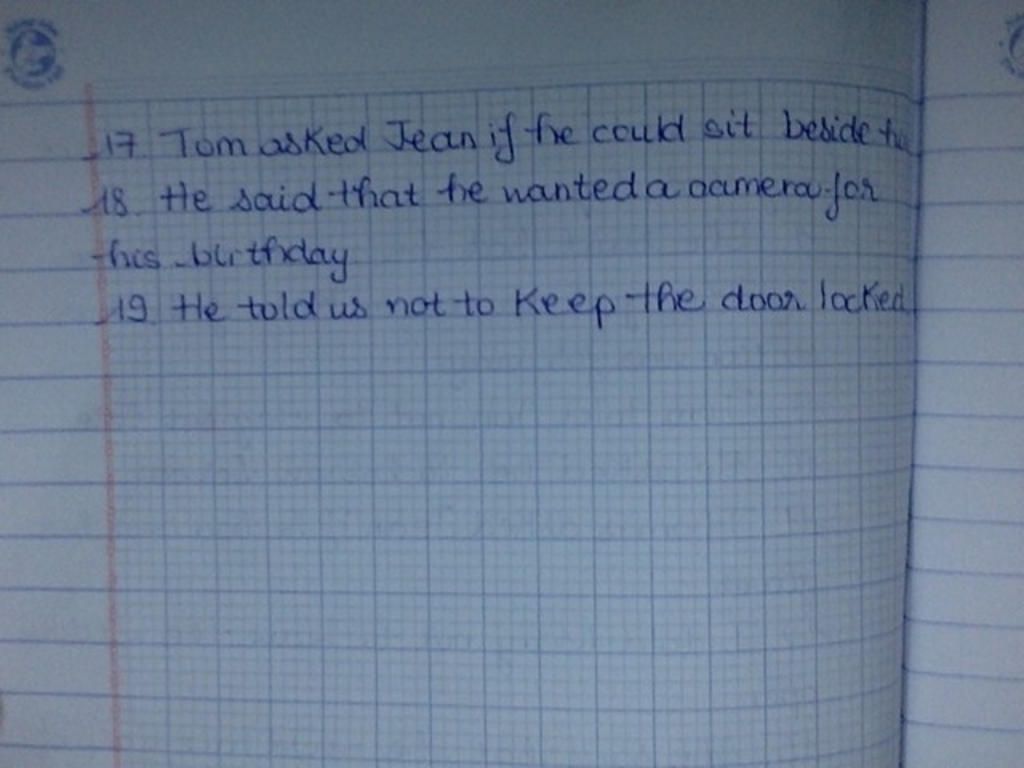 17 Tom asked Jean if he could sit beside
18. He said that he wanted a camera for
his birthday
19 He told us not to keep the door locked